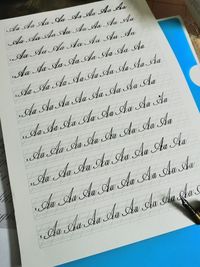 Aa Aa Aa Aa Aa Aa Aa Aa
Aa Aa Aa Aa Aa Aa Aa
Aa Aa Aa Aa Aa Aa Aa
Aa Aa Aa Aa Aa Aa Aa
Aa Aa Aa Aa Aa Aa Aa Aa
Aa Aa Aa Aa Aa Aa Aa
Aa Aa Aa Aa Aa Aa Aa
Aa Aa Aa Aa Aa Aa Aa
Aa Aa Aa Aa Aa Aa Aa
Aa Aa Aa Aa Aa Aa Aa
Aa Aa Aa Aa Aa Aa Aa